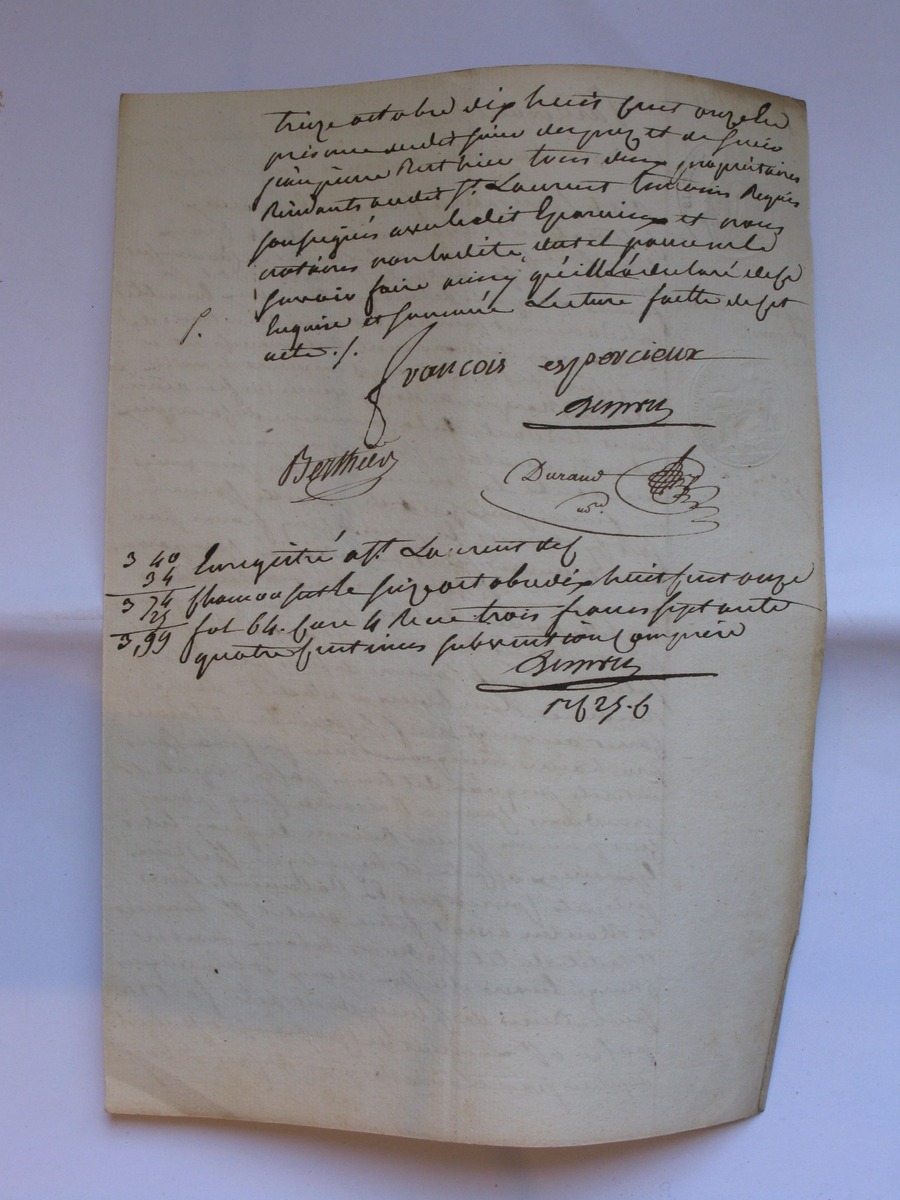 treize octobre dix huit cent onze En
présence dudit sieur et de sieur
jean pierre Berthier tous deux propriétaires
Résidants audit St. Laurent temoins Requis
soussignés avec ledit Esparcieux et nous
notaires non ladite pour ne le
savoir faire ainsy qu'elle l'a déclaré de ce
Enquise et sommée Lecture faitte de cet
acte ./.
françois esparcieux
Berthier
Durand
nore.
3 40
34
3 74
25
3,99
Enregistré a St. Laurent de
chamousset le seize octobre dix huit cent onze
fol 64. Case 4 Recu trois francs septante
quatre centimes subvention comprise